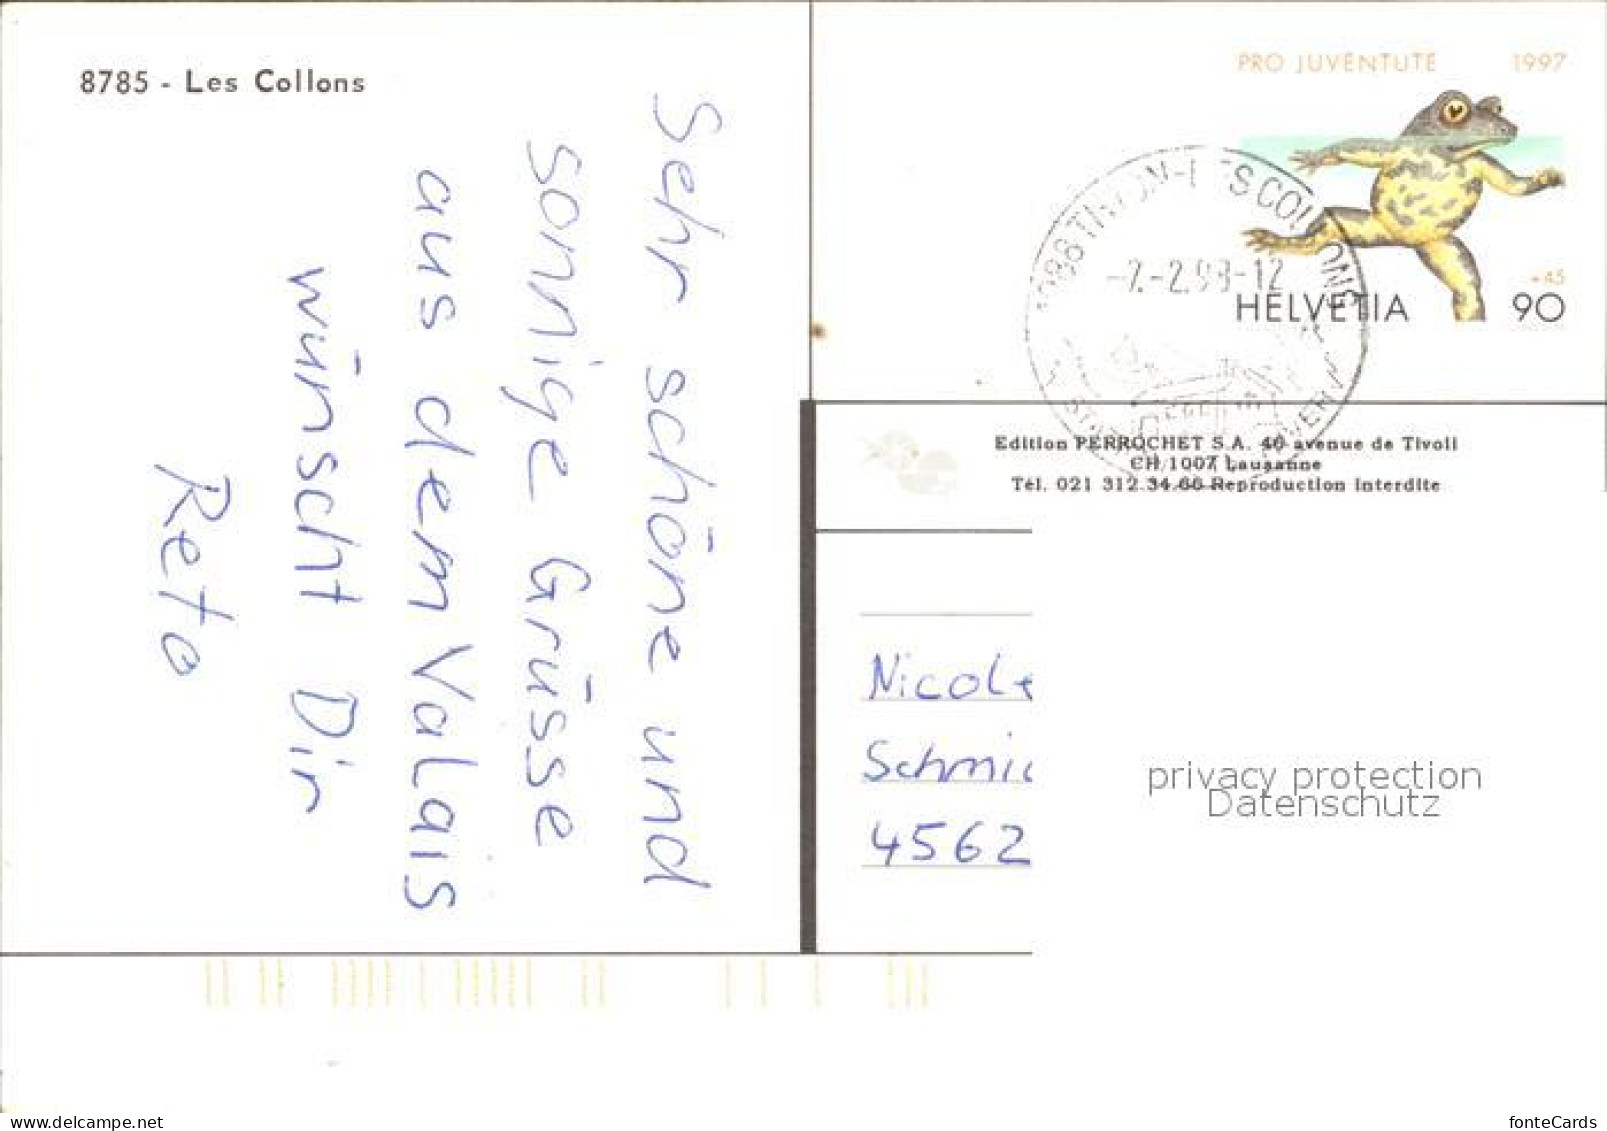 8785 - Les Collons
Sehr schöne und
sonnige Grüsse
aus dem Valais
wünscht Dir
Reto
PRO JUVENTUTE 1997
+45
HELVETIA 90
-7.-2.98-12
LES COLLONS
Edition PERROCHET S.A. 46 avenue de Tivoli
CH 1007 Lausanne
Tél. 021 312.34.66 Reproduction interdite
Nicole
Schmid
4562
privacy protection
Datenschutz
www.delcampe.net
fonteCards